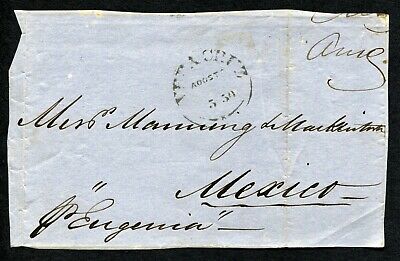 Aug
VERA CRUZ
AGOSTO
Messrs Manning & Mackintosh
Mexico
p "Eugenia"